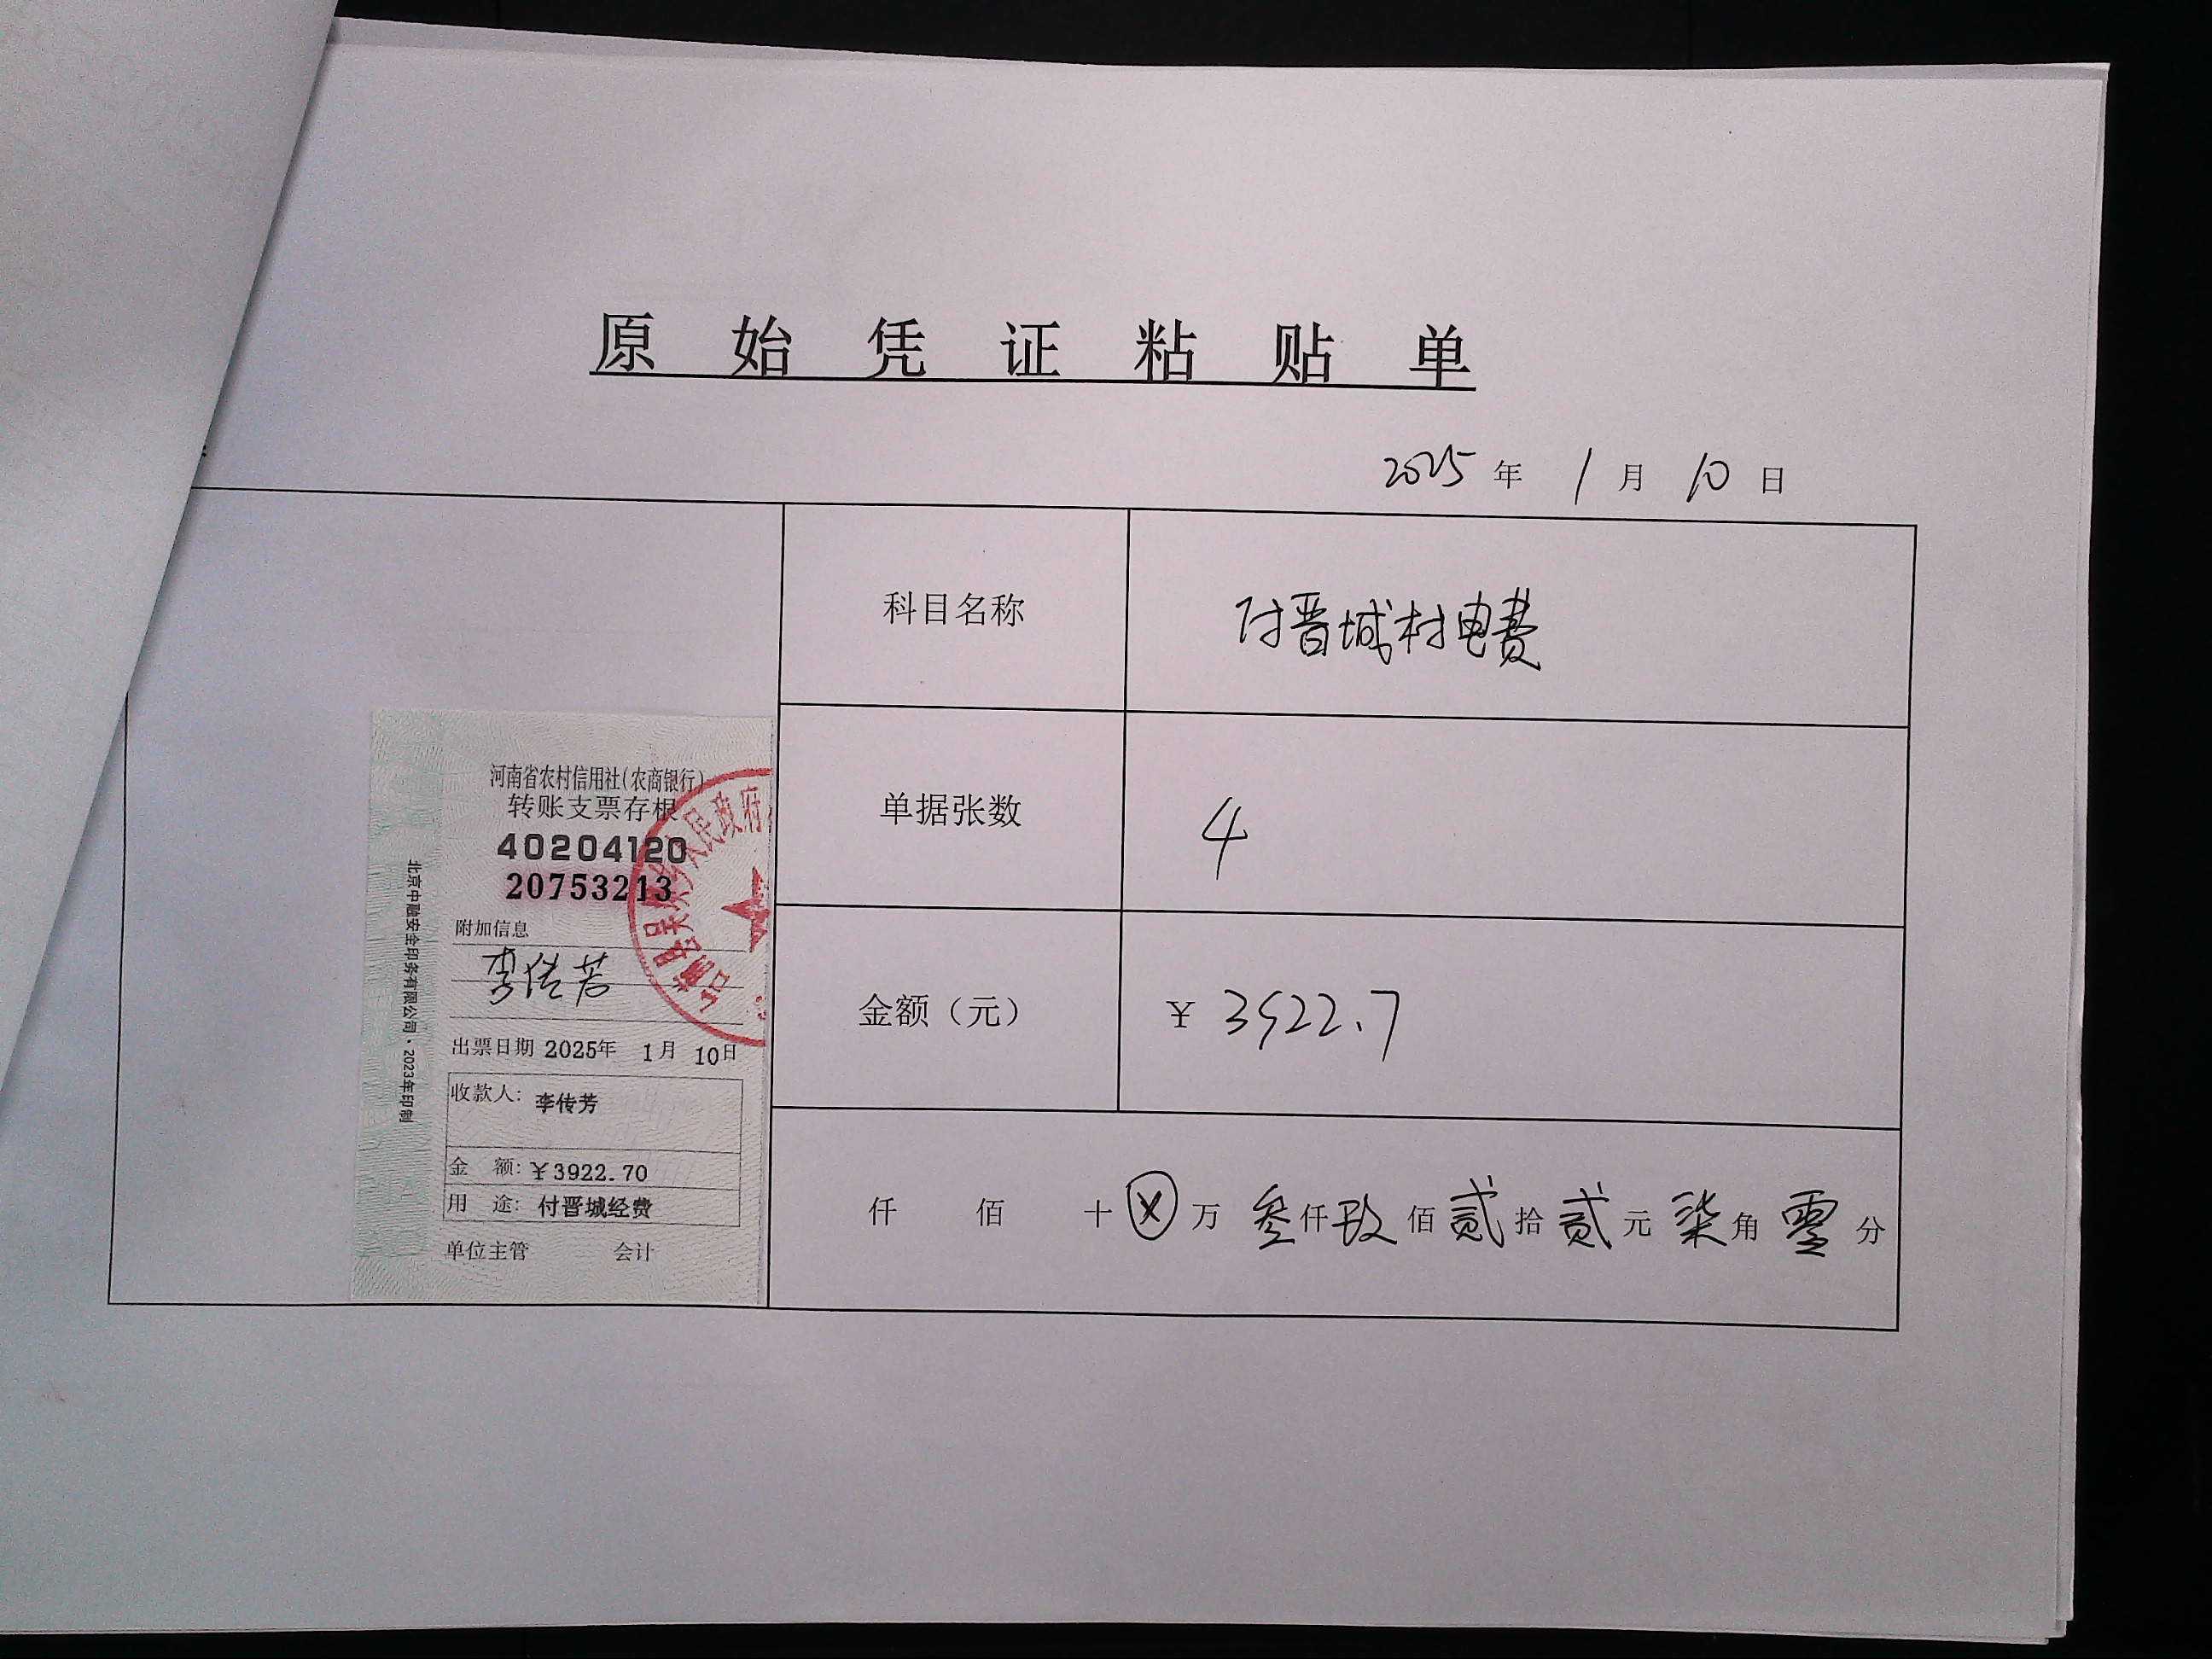 原始凭证粘贴单
2025年1月10日
科目名称 付晋城村电费
单据张数 4
金额（元） ¥3922.7
仟 佰 十ⓧ万叁仟玖佰贰拾贰元柒角零分
河南省农村信用社(农商银行)
转账支票存根
40204120
20753213
附加信息
李传芳
出票日期 2025年 1月 10日
收款人: 李传芳
金 额: ¥3922.70
用 途: 付晋城经费
单位主管 会计
北京中融安全印务有限公司·2023年印制
人民政府